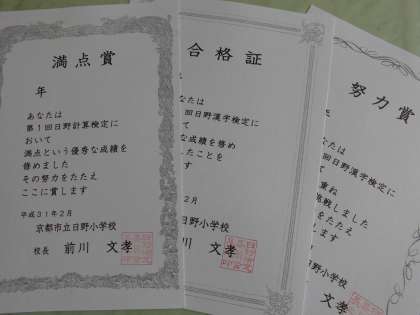 満点賞
年
あなたは
第1回日野計算検定に
おいて
満点という優秀な成績を
修めました
その努力をたたえ
ここに賞します
平成31年2月
京都市立日野小学校
校長 前川 文孝
合格証
年
あなたは
回日野漢字検定に
な成績を修め
したことを
ます
2月
日野小学校
川 文孝
努力賞
年
たは
回日野漢字検定に
重ね
挑戦しました
をたたえ
ます
日野小学校
川 文孝